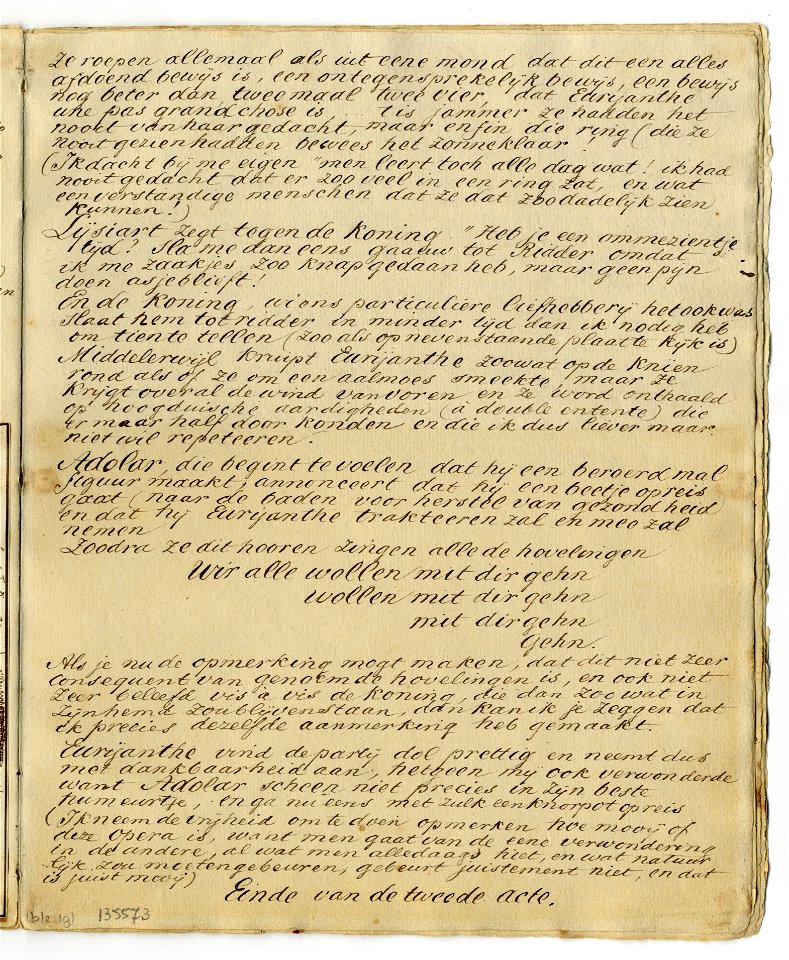 Ze roepen allemaal als uit eene mond dat dit een alles
afdoend bewijs is, een ontegensprekelijk bewijs, een bewijs
nog beter dan tweemaal twee vier, dat Eurijanthe
une pas grand chose is, ... 't is jammer ze hadden het
nooit van haar gedacht, maar enfin die ring (die ze
nooit gezien hadden bewees het zonneklaar!
(Ik dacht bij me eigen "men leert toch alle dag wat! ik had
nooit gedacht dat er zoo veel in een ring zat, en wat
een verstandige menschen dat ze dat zoo dadelijk zien
kunnen!)
Lÿsiart zegt tegen de koning. "Heb je een ommezientje
tijd? Sla me dan eens gaauw tot Ridder omdat
ik me zaakjes zoo knap gedaan heb, maar geen pyn
doen asjeblieft!
En de koning, wiens particuliere liefhebberij het ook was
slaat hem tot ridder in minder tijd dan ik nodig heb
om tien te tellen (zoo als op nevenstaande plaat te kijk is)
Middelerwijl kruipt Eurijanthe zoowat op de knien
rond als of ze om een aalmoes smeekte, maar ze
krijgt overal de wind van voren en ze word onthaald
op hoogduische aardigheden (à double entente) die
er maar half door konden en die ik dus liever maar
niet wil repeteeren.
Adolar, die begint te voelen dat hij een beroerd mal
figuur maakt, annonceert dat hij een beetje op reis
gaat (naar de baden voor herstel van gezondheid
en dat hij Eurijanthe trakteeren zal en mee zal
nemen
Zoodra ze dit hooren zingen alle de hovelingen
Wir alle wollen mit dir gehn
wollen mit dir gehn
mit dir gehn
Gehn.
Als je nu de opmerking mogt maken, dat dit niet zeer
consequent van genoemde hovelingen is, en ook niet
zeer beleefd vis à vis de koning, die dan zoo wat in
zijn hemd zou blijven staan, dan kan ik je zeggen dat
ik precies dezelfde aanmerking heb gemaakt.
Eurijanthe vind de partij dol prettig en neemt dus
met dankbaarheid aan, hetgeen mij ook verwonderde
want Adolar scheen niet precies in zijn beste
humeurtje, en ga nu eens met zulk een knorpot op reis
(Ik neem de vrijheid om te doen opmerken hoe mooij of
deze opera is, want men gaat van de eene verwondering
in de andere, al wat men alledaags ziet, en wat natuur
lijk zou moeten gebeuren, gebeurt juistement niet, en dat
is juist mooij)
Einde van de tweede acte.
(blz. 19) 135573